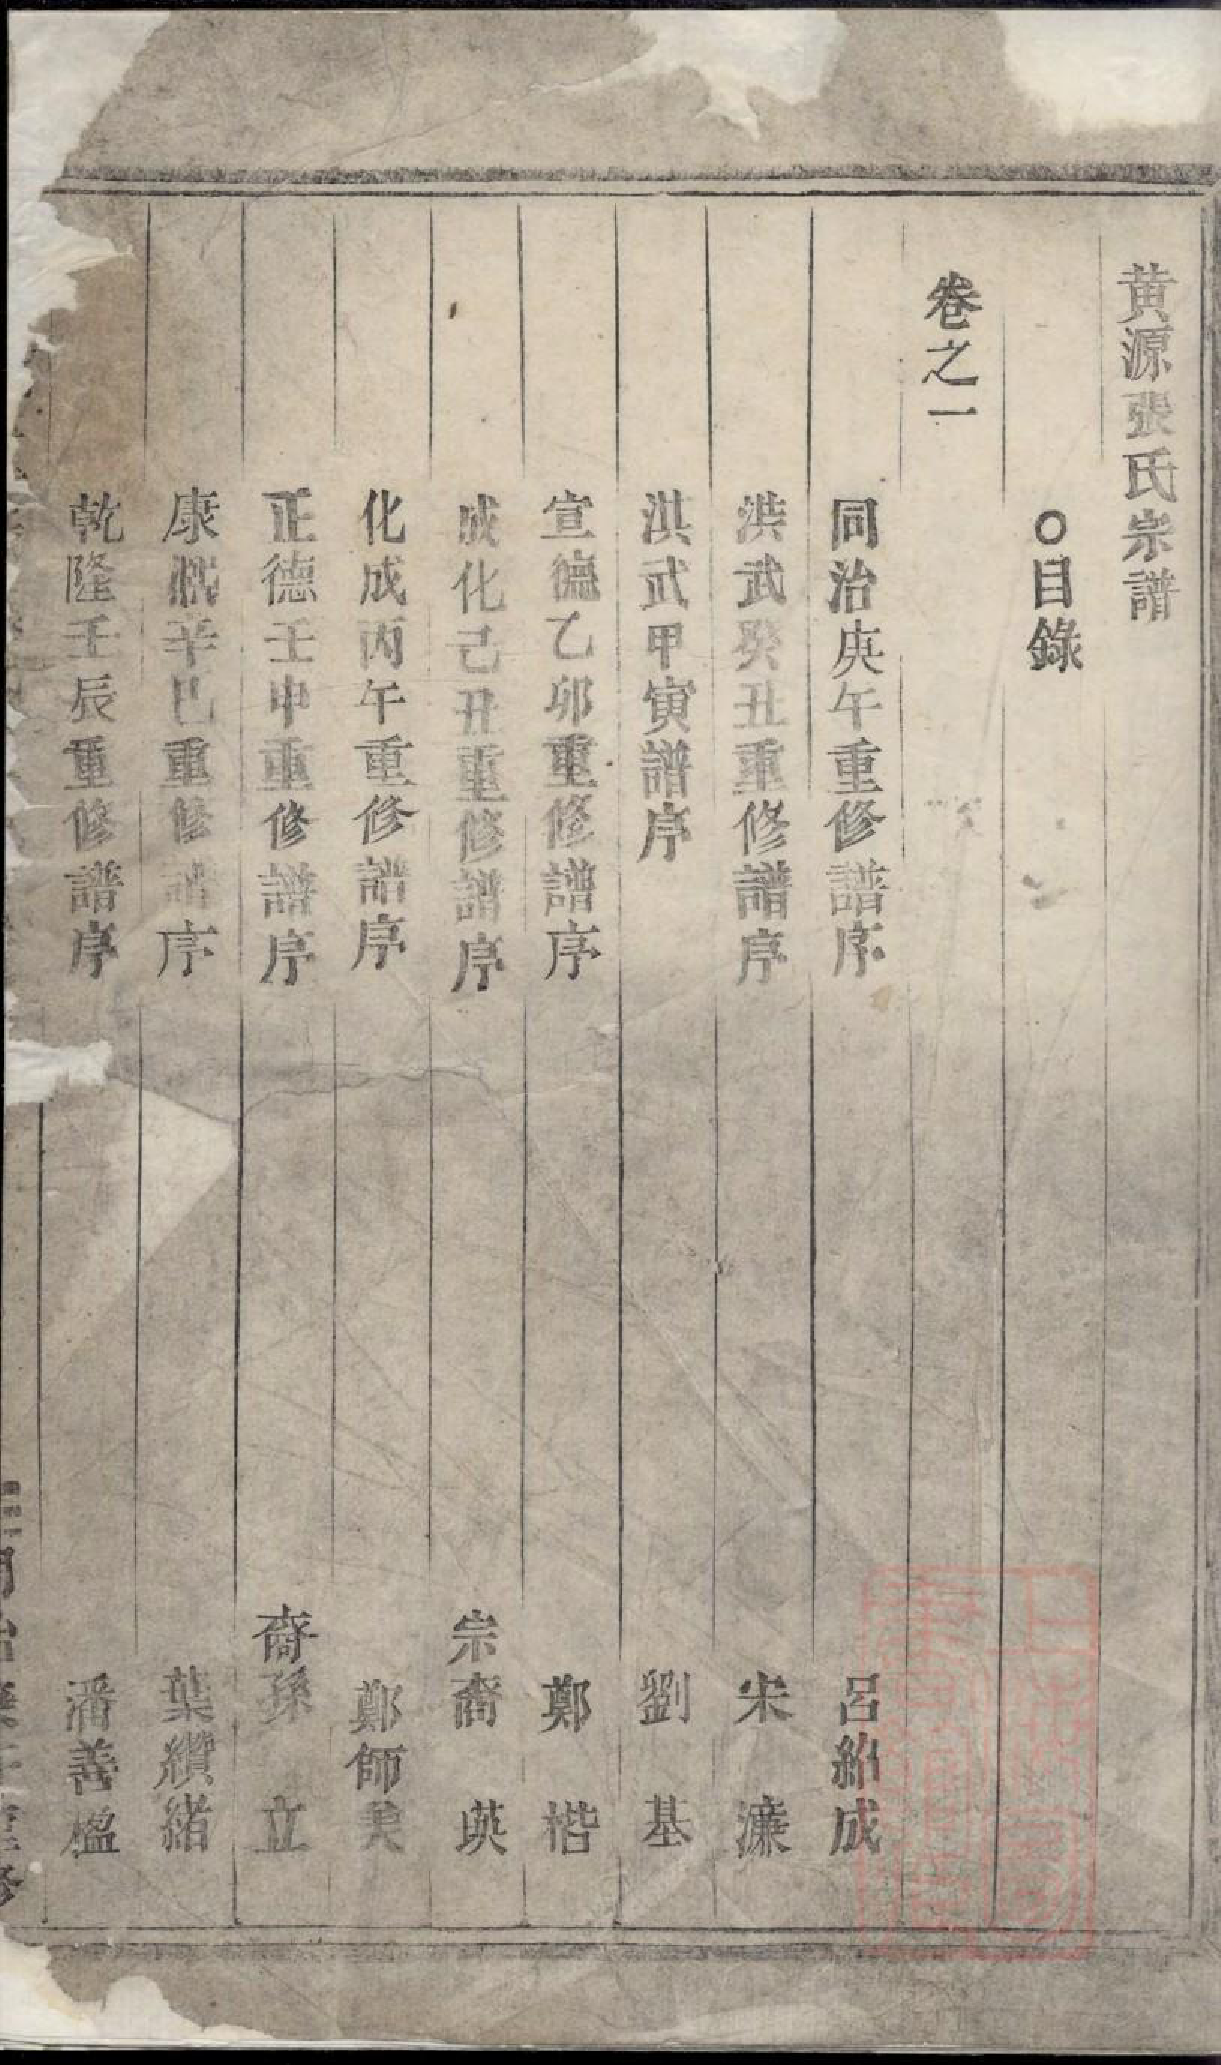 黄源張氏宗譜
○目錄
卷之一
同治庚午重修譜序 呂紹成
洪武癸丑重修譜序 宋濂
洪武甲寅譜序 劉基
宣德乙卯重修譜序 鄭楷
成化己丑重修譜序 宗裔 英
化成丙午重修譜序 鄭師
正德壬申重修譜序 裔孫 立
康熙辛巳重修譜序 葉纘緒
乾隆壬辰重修譜序 潘善楹